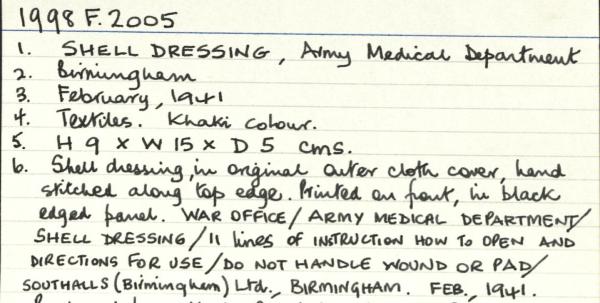 1998 F. 2005
1. SHELL DRESSING, Army Medical Department
2. Birmingham
3. February, 1941
4. Textiles. Khaki colour.
5. H 9 x W 15 x D 5 cms.
6. Shell dressing, in original outer cloth cover, hand
stitched along top edge. Printed on front, in black
edged panel. WAR OFFICE/ ARMY MEDICAL DEPARTMENT/
SHELL DRESSING/11 lines of INSTRUCTION HOW TO OPEN AND
DIRECTIONS FOR USE/DO NOT HANDLE WOUND OR PAD/
SOUTHALLS (Birmingham) Ltd., BIRMINGHAM. FEB., 1941.